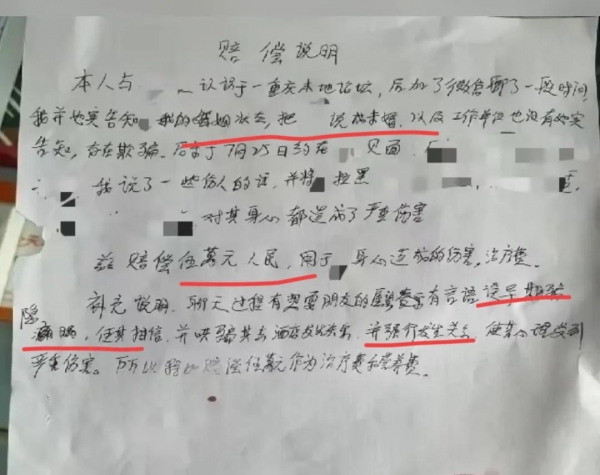 赔偿说明
本人与 认识于一重庆本地论坛，后加了微信聊了一段时间
我并如实告知 我的婚姻状态，把 说成未婚，以及工作单位也没有如实
告知，存在欺骗。后来于7月25日约在 见面
我说了一些伤人的话，并将 拉黑
对其身心都造成了严重伤害
兹赔偿伍萬元人民，用于 身心造成的伤害，治疗费。
补充说明，聊天过程有想要朋友的 有言语误导
隐瞒，任其相信，并哄骗其去酒店发生关系，并强行发生关系，使其心理受到
严重伤害。 赔偿伍萬元作为治疗费和营养费。